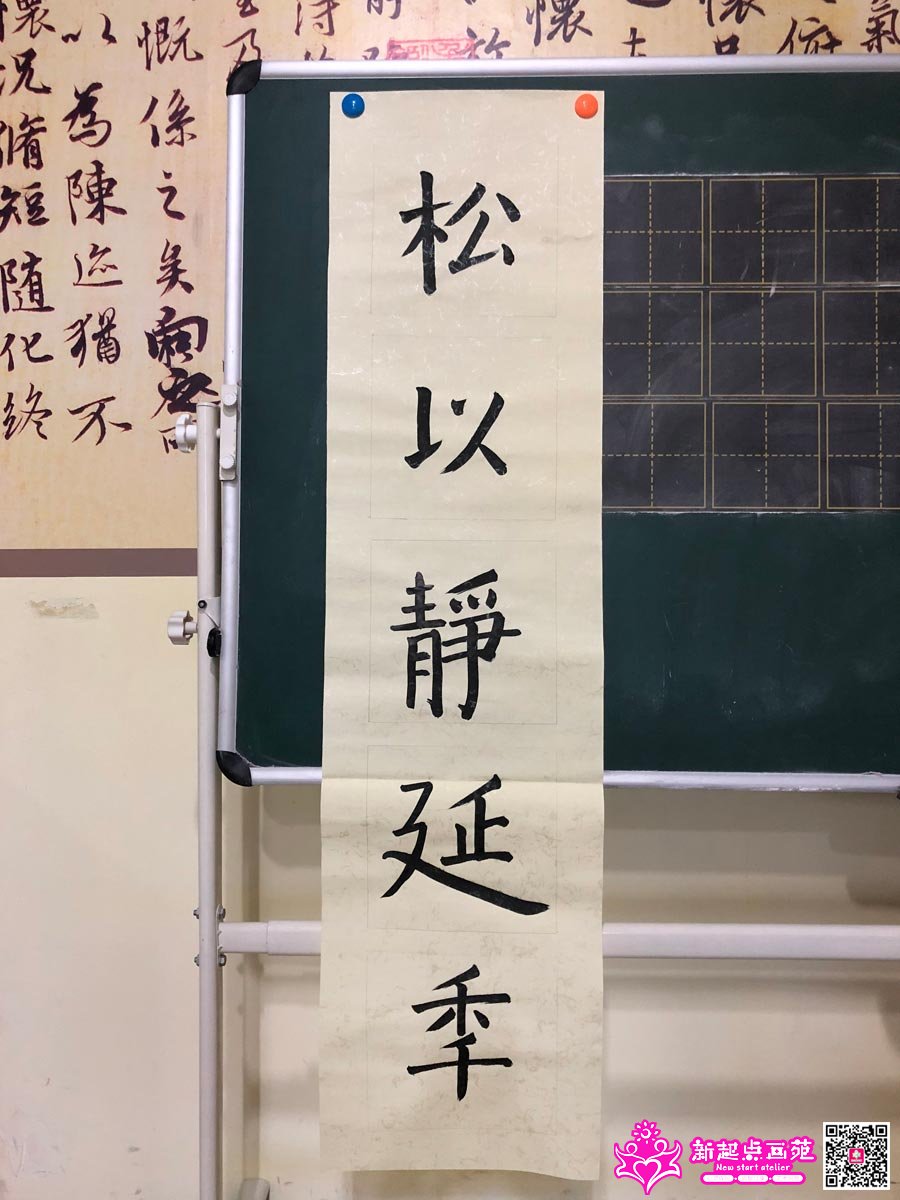 松以靜延秊
氣
俯
懷
慨係之矣向之
以為陳迹猶不
懷況脩短隨化終
新起点画苑
New start atelier